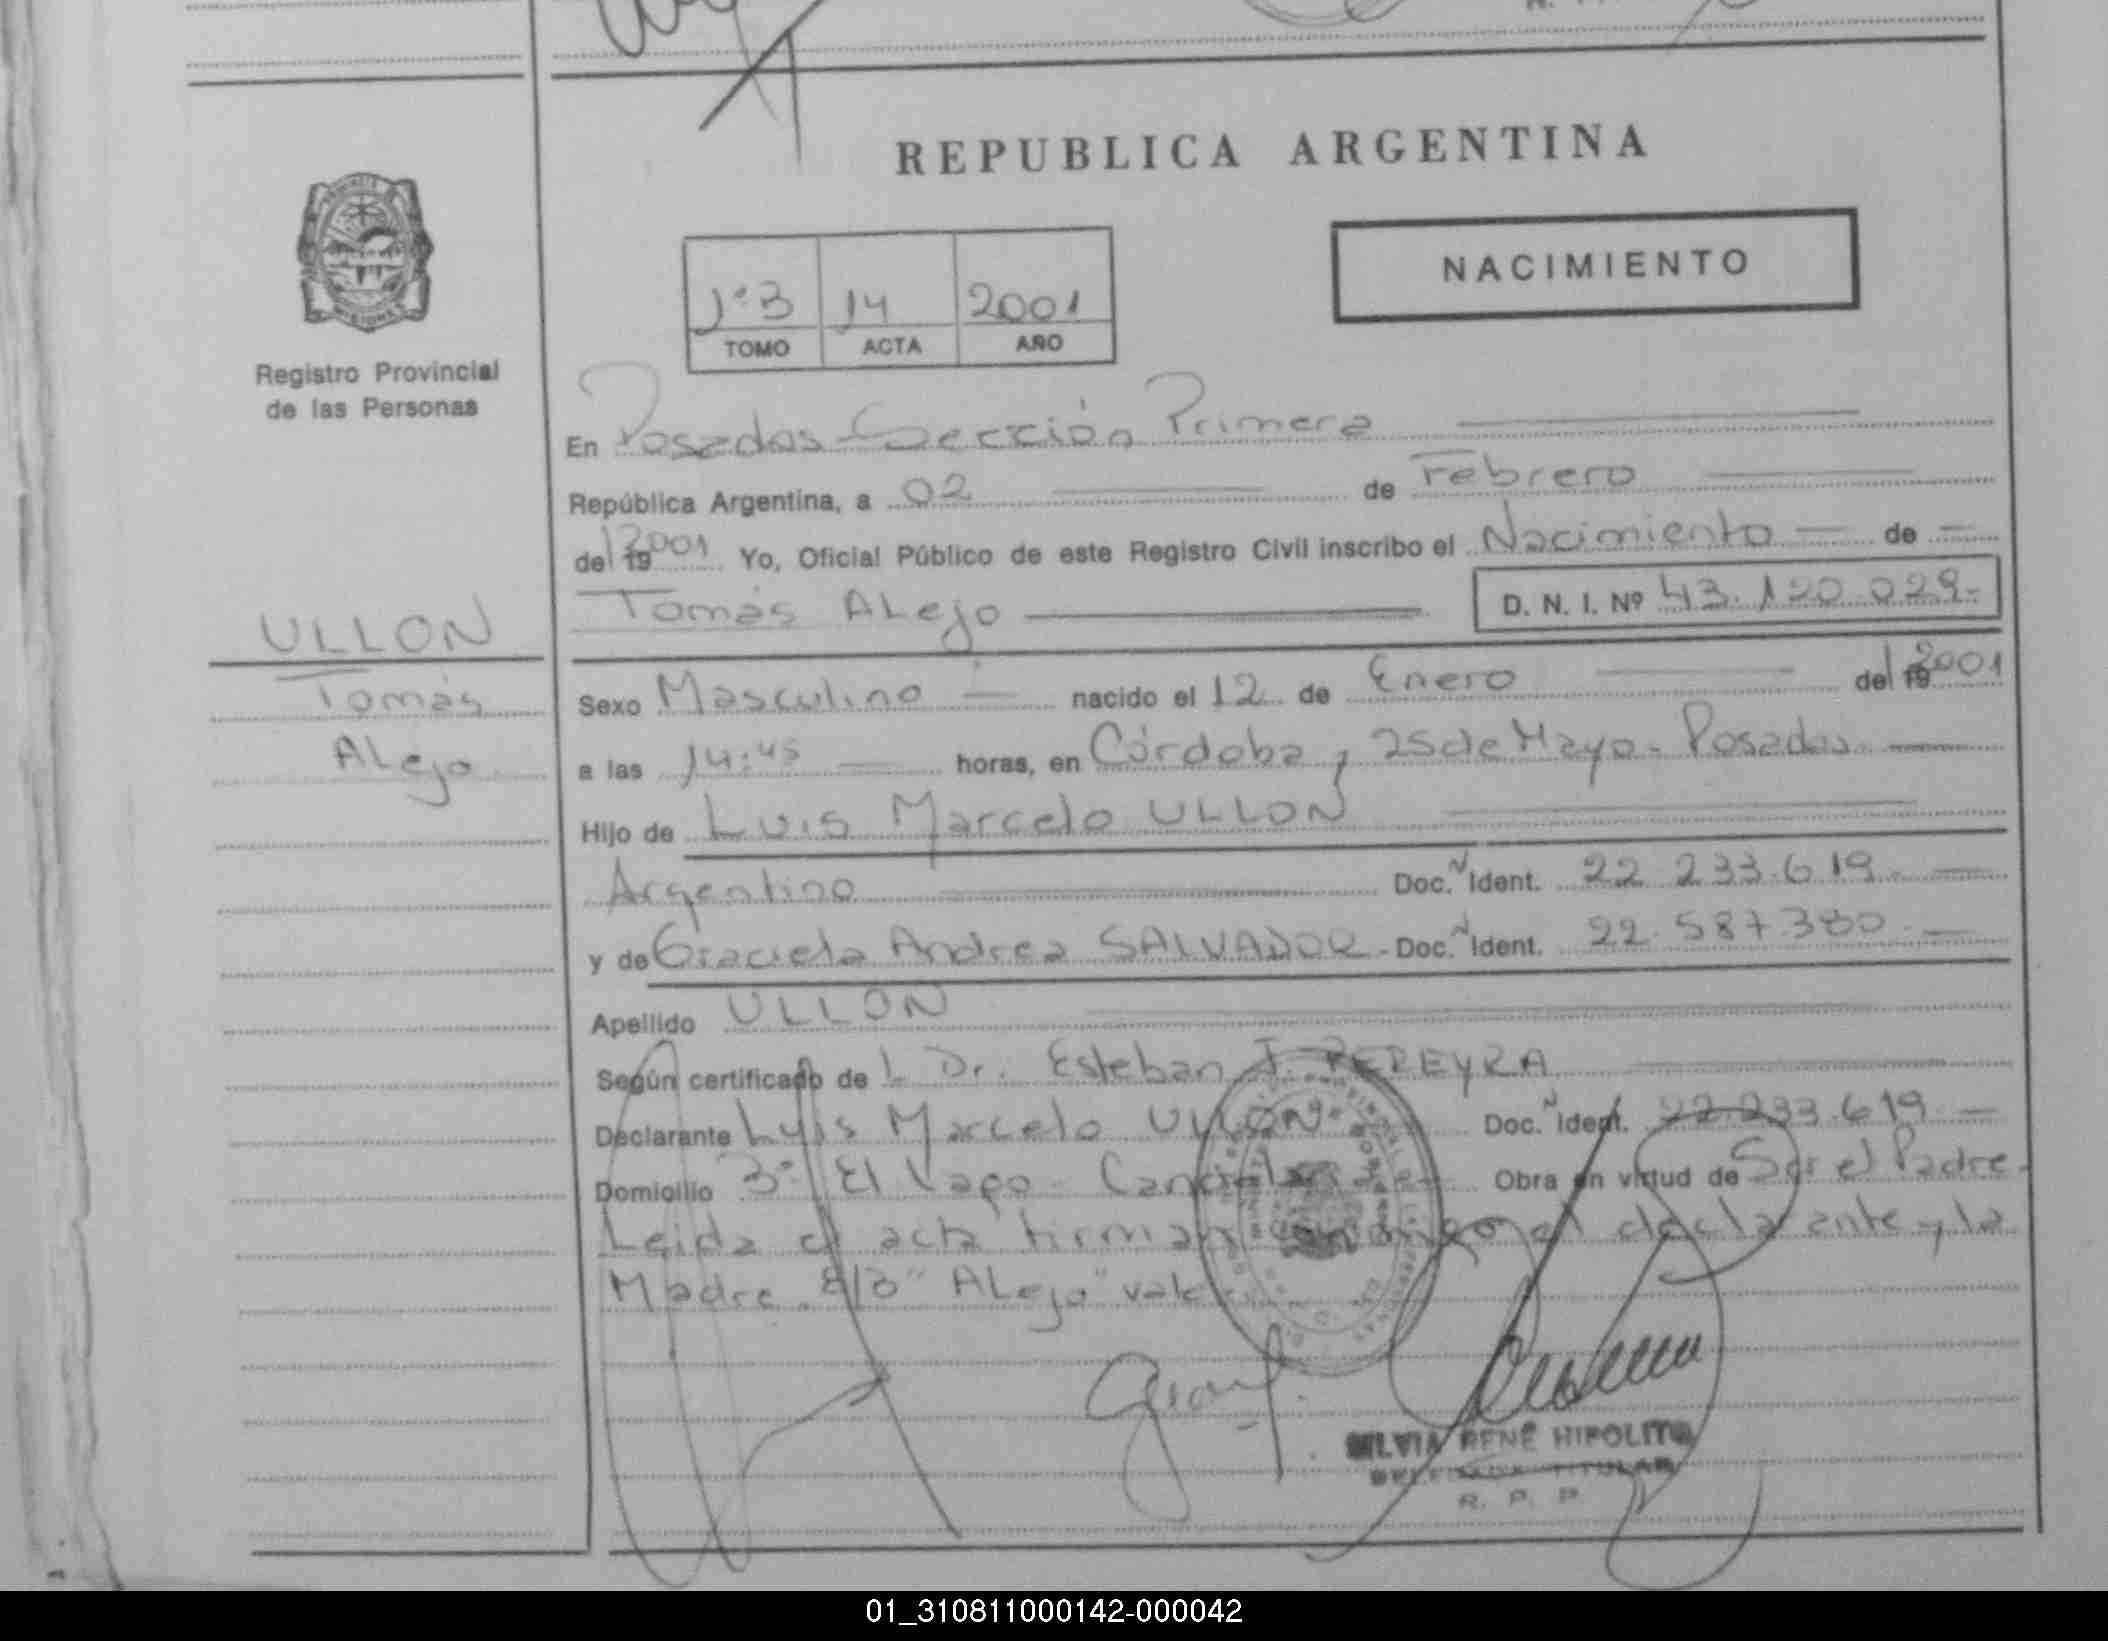 REPUBLICA ARGENTINA
NACIMIENTO
1º3 14 2001
TOMO ACTA AÑO
Registro Provincial
de las Personas
En Posadas Sección Primera
República Argentina, a 02 de Febrero
del 19 2001 Yo, Oficial Público de este Registro Civil inscribo el Nacimiento de
Tomás ALejo D. N. I. Nº 43.120.029-
ULLON
Tomás
ALejo
Sexo Masculino nacido el 12 de Enero del 19 2001
a las 14:45 horas, en Córdoba y 25 de Mayo - Posadas
Hijo de Luis Marcelo ULLON
Argentino Doc. N Ident. 22.233.619.
y de Graciela Andrea SALVADOR - Doc. N Ident. 22.587.380.
Apellido ULLON
Según certificado de L Dr. Esteban J. PEREYRA
Declarante Luis Marcelo ULLON Doc. N Ident. 22.233.619
Domicilio El Obra en virtud de Ser el Padre.
Leida el acta firman conmigo el declarante y la
Madre. S/B "ALejo" vale
SILVIA RENÉ HIPOLITO
TITULAR
R. P. P.
01_310811000142-000042